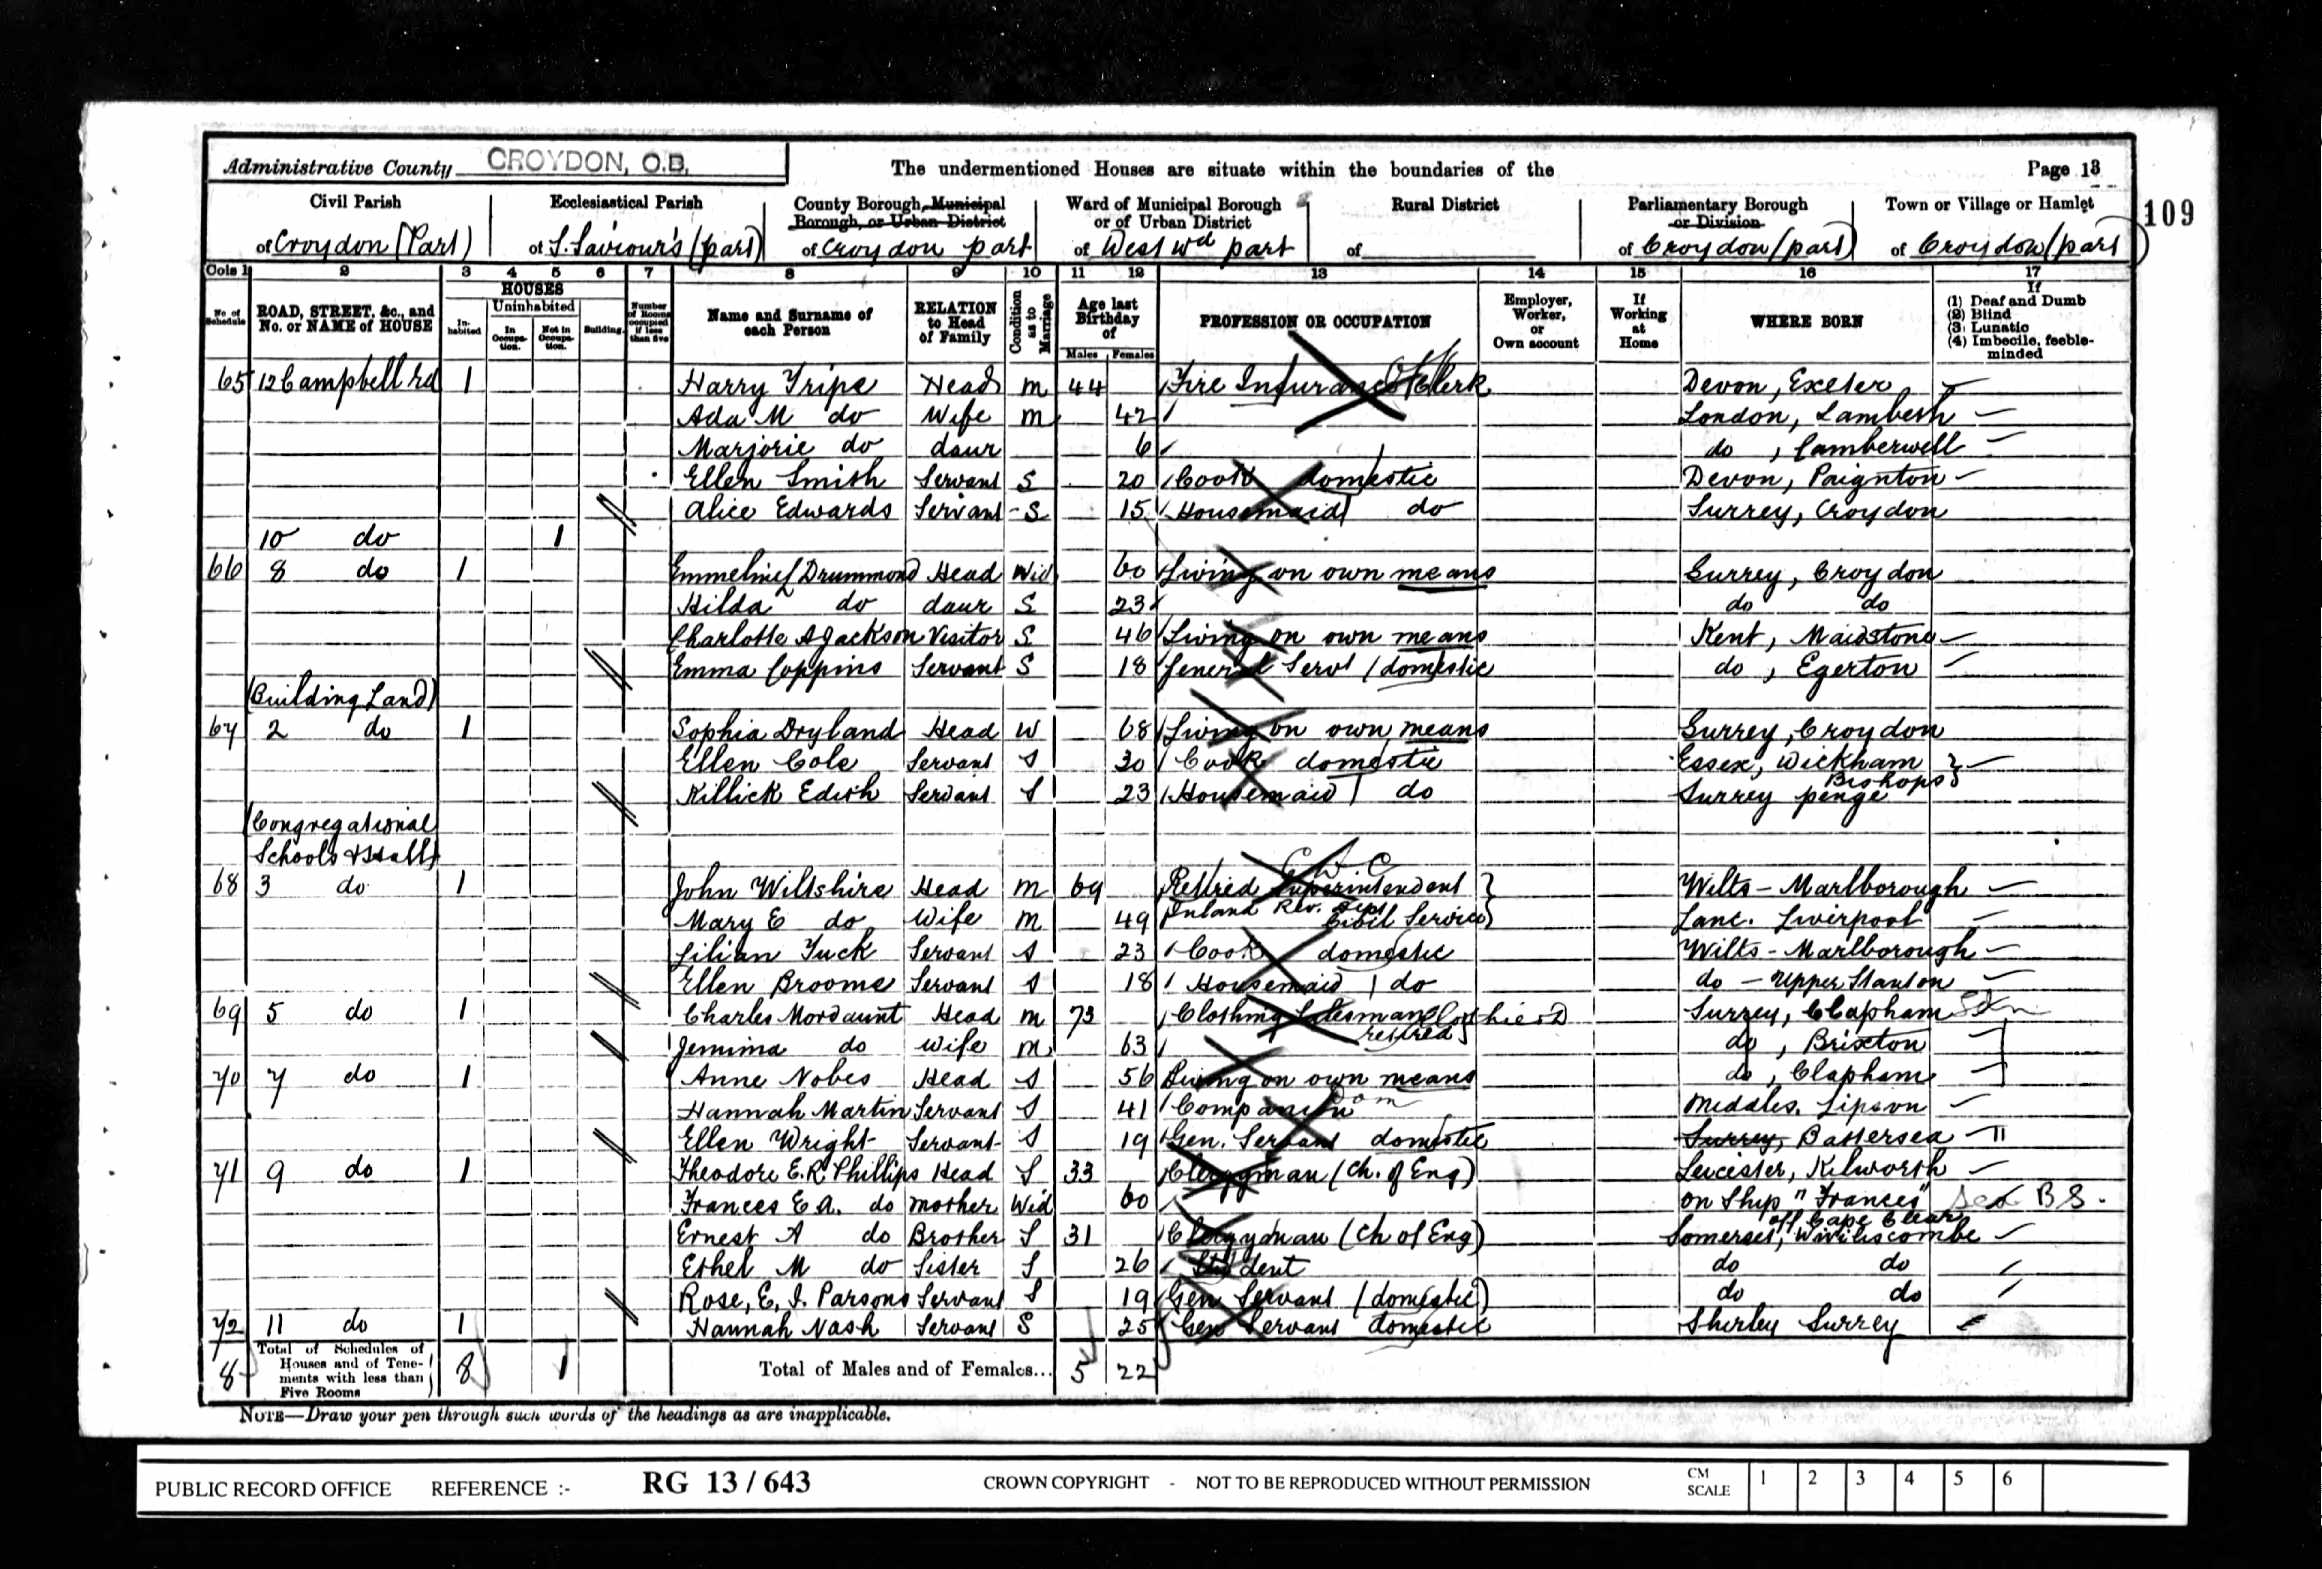 Administrative County CROYDON, C.B. The undermentioned Houses are situate within the boundaries of the Page 13
109
Civil Parish Ecclesiastical Parish County Borough, Municipal Borough, or Urban District Ward of Municipal Borough or of Urban District Rural District Parliamentary Borough or Division Town or Village or Hamlet
of Croydon (Part) of S. Saviour's (part) of Croydon part of West Wd part of of Croydon (part) of Croydon (part)
Cols 1 2 3 4 5 6 7 8 9 10 11 12 13 14 15 16 17
No. of Schedule ROAD, STREET, &c., and No. or NAME of HOUSE HOUSES Inhabited Uninhabited In Occupation. Not in Occupation. Building. Number of Rooms occupied if less than five Name and Surname of each Person RELATION to Head of Family Condition as to Marriage Age last Birthday of Males Females PROFESSION OR OCCUPATION Employer, Worker, or Own account If Working at Home WHERE BORN If (1) Deaf and Dumb (2) Blind (3) Lunatic (4) Imbecile, feeble-minded
65 12 Campbell rd 1 Harry Tripe Head M 44 Fire Insurance Clerk Devon, Exeter
Ada M do Wife M 42 London, Lambeth
Marjorie do daur 6 do, Camberwell
Ellen Smith Servant S 20 Cook domestic Devon, Paignton
Alice Edwards Servant S 15 Housemaid do Surrey, Croydon
10 do 1
66 8 do 1 Emmeline Drummond Head Wid 60 Living on own means Surrey, Croydon
Hilda do daur S 23 do do
Charlotte A Jackson Visitor S 46 Living on own means Kent, Maidstone
Emma Coppins Servant S 18 General Servt (domestic do, Egerton
(Building Land)
67 2 do 1 Sophia Dryland Head W 68 Living on own means Surrey, Croydon
Ellen Cole Servant S 30 Cook domestic Essex, Wickham Bishops
Killick Edith Servant S 23 Housemaid do Surrey penge
(Congregational
Schools & Hall)
68 3 do 1 John Wiltshire Head M 69 Retired Superintendent Wilts - Marlborough
Mary E do Wife M 49 Inland Rev. Dept Civil Service Lanc. Liverpool
Lilian Tuck Servant S 23 Cook domestic Wilts - Marlborough
Ellen Broome Servant S 18 Housemaid do do - Upper Stanton
69 5 do 1 Charles Mordaunt Head M 73 Clothing Salesman retired Clothier D Surrey, Clapham
Jemima do Wife M 63 do, Brixton
70 7 do 1 Anne Nobes Head S 56 Living on own means do, Clapham
Hannah Martin Servant S 41 Companion Dom Middles. Lipson
Ellen Wright Servant S 19 Gen. Servant domestic Surrey, Battersea
71 9 do 1 Theodore E.R. Phillips Head S 33 Clergyman (Ch. of Eng) Leicester, Kilworth
Frances E A. do Mother Wid 60 on Ship "Frances" off Cape Clear B S.
Ernest A do Brother S 31 Clergyman (Ch of Eng) Somerset, Wiveliscombe
Ethel M do Sister S 26 Student do do
Rose, E, I. Parsons Servant S 19 Gen Servant (domestic) do do
72 11 do 1 Hannah Nash Servant S 25 Gen Servant domestic Shirley Surrey
8 Total of Schedules of Houses and of Tenements with less than Five Rooms 8 1 Total of Males and of Females... 5 22
NOTE—Draw your pen through such words of the headings as are inapplicable.
PUBLIC RECORD OFFICE REFERENCE :- RG 13 / 643 CROWN COPYRIGHT - NOT TO BE REPRODUCED WITHOUT PERMISSION CM SCALE 1 2 3 4 5 6